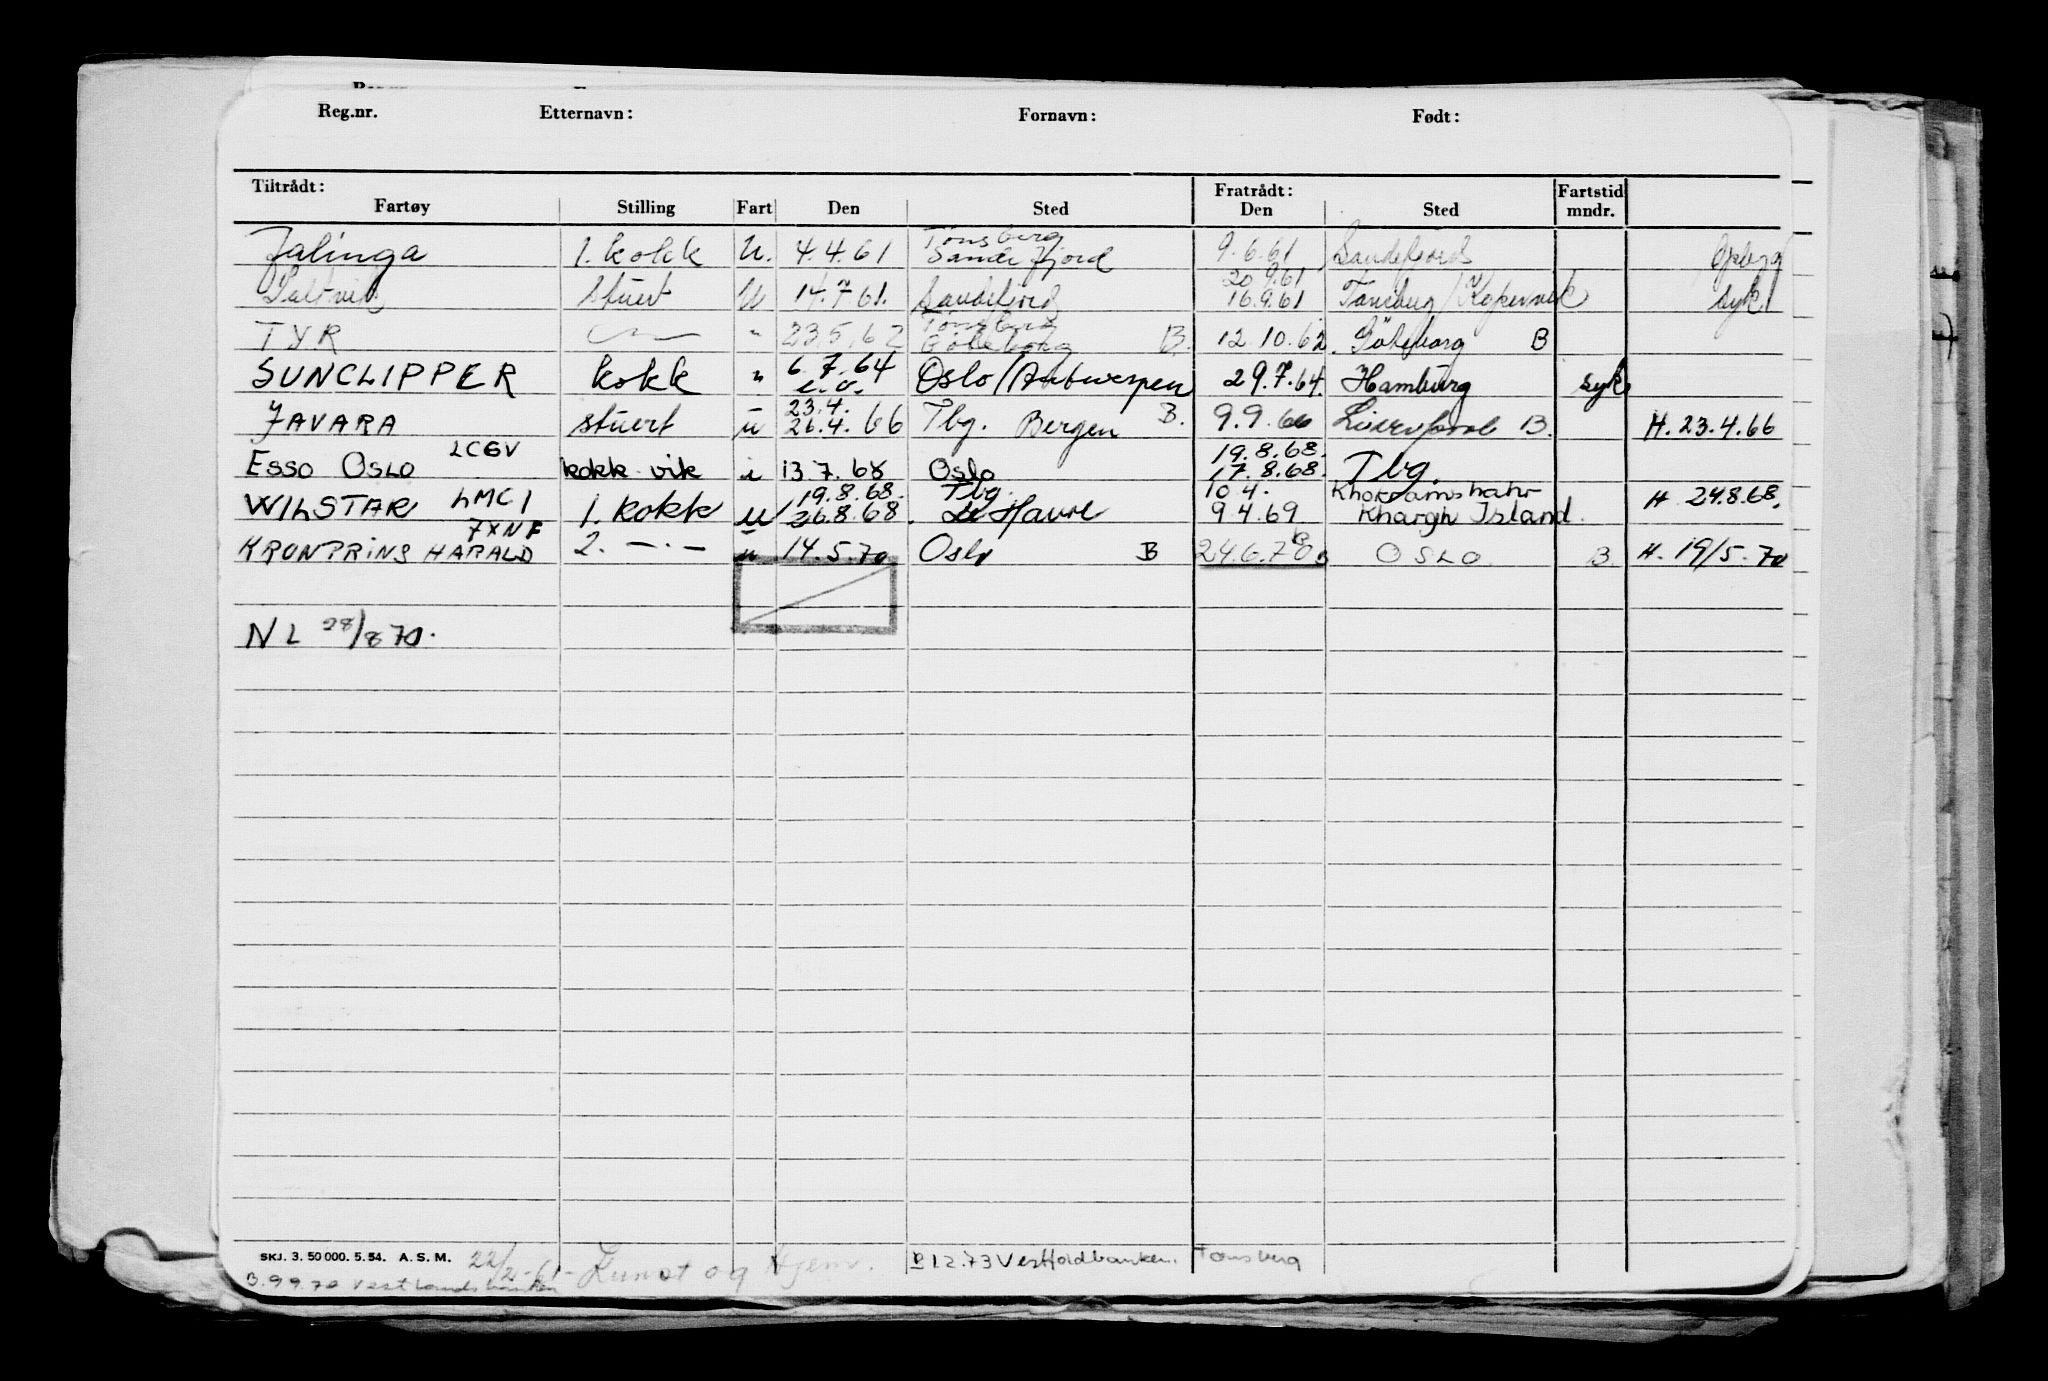 Reg.nr. Etternavn: Fornavn: Født:
Tiltrådt: Fratrådt: Fartstid
Fartøy Stilling Fart Den Sted Den Sted mndr.
Tønsberg
Jalinga 1. kokk U. 4.4.61 Sandefjord 9.6.61 Sandefjord
20.9.61
Saltvik stuert U 14.7.61. Sandefjord 16.9.61 Tønsberg / Kopervik syk
Tønsberg
TYR " 23.5.62 Göteborg B. 12.10.62. Göteborg B
6.7.64
SUNCLIPPER kokk " e.o. Oslo/Antwerpen 29.7.64. Hamburg syk
23.4.
JAVARA stuert u 26.4.66 Tbg. Bergen B. 9.9.66 Liverpool B. H. 23.4.66
LCGV 19.8.68.
Esso Oslo kokk vik i 13.7.68 Oslo 17.8.68. Tbg.
LMCI 19.8.68. Tbg. 10.4. Khorramshahr
WILSTAR 1. kokk u 26.8.68. Le Havre 9.4.69 Khargh Island. H 24.8.68.
JXNF
KRONPRINS HARALD 2. —.— u 14.5.70 Oslo B 24.6.70 B OSLO B. H. 19/5.70
NL 28/8 70.
SKJ. 3. 50 000. 5. 54. A. S. M. 22/2-61- Lunst og Hjem. 12.73 Vestfoldbanken. Tønsberg
B. 9.9.70 Vestlandsbanken